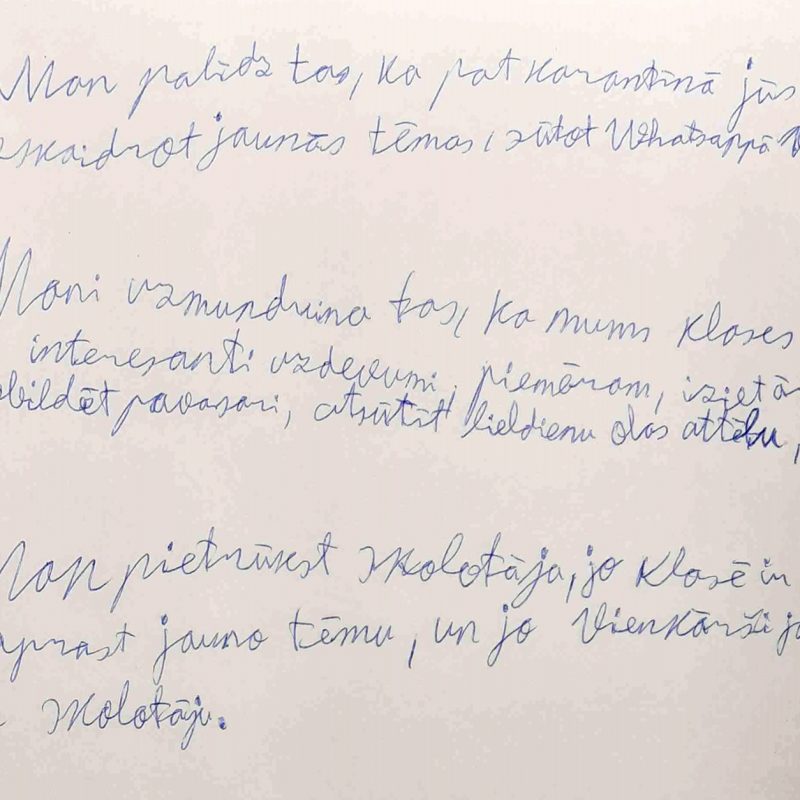 Man palīdz tas, ka pat karantīnā jūs
skaidrot jaunās tēmas, sūtot Whatsappā
Mani uzmundrina tas, ka mums klases
interesanti uzdevumi, piemēram, iziet ār
obildēt pavasari, atsūtīt lieldienu olas attēlu,
Man pietrūkst skolotāja, jo klasē ir
aprast jauno tēmu, un jo vienkārši ja
skolotāju.